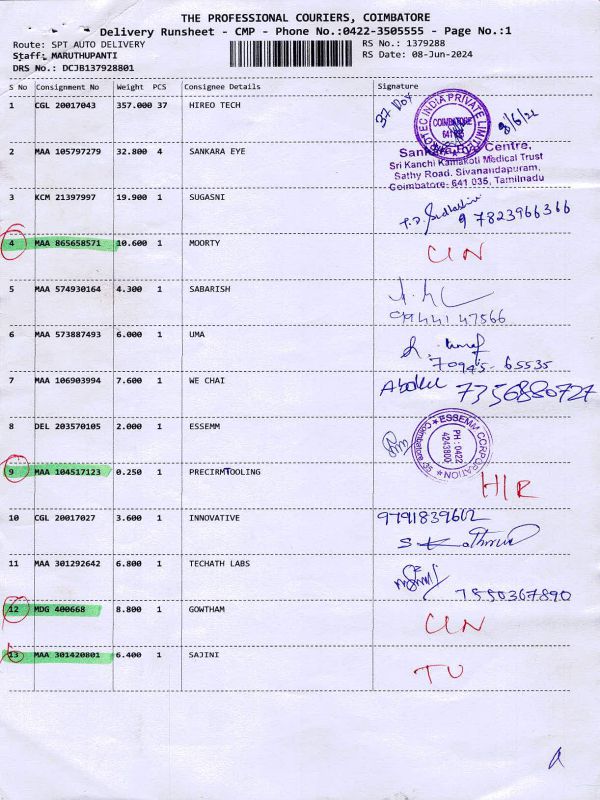 THE PROFESSIONAL COURIERS, COIMBATORE
Delivery Runsheet - CMP - Phone No.:0422-3505555 - Page No.:1
Route: SPT AUTO DELIVERY RS No.: 1379288
Staff: MARUTHUPANTI RS Date: 08-Jun-2024
DRS No.: DCJB137928801
S No Consignment No Weight PCS Consignee Details Signature
1 CGL 20017043 357.000 37 HIREO TECH 37 Box
INDIA PRIVATE LIMITED
COIMBATORE
2 MAA 105797279 32.800 4 SANKARA EYE Sankara Eye Centre,
Sri Kanchi Kamakoti Medical Trust
Sathy Road, Sivanandapuram,
Coimbatore- 641 035, Tamilnadu
3 KCM 21397997 19.900 1 SUGASNI
9 7823966366
4 MAA 865658571 10.600 1 MOORTY C/N
5 MAA 574930164 4.300 1 SABARISH
9944147566
6 MAA 573887493 6.000 1 UMA
70945-65535
7 MAA 106903994 7.600 1 WE CHAI 7356880727
8 DEL 203570105 2.000 1 ESSEMM
ESSEMM CORPORATION
PH : 0422
4243800
9 MAA 104517123 0.250 1 PRECIRMTOOLING H/R
10 CGL 20017027 3.600 1 INNOVATIVE 9791839602
11 MAA 301292642 6.800 1 TECHATH LABS
7550367890
12 MDG 400668 8.800 1 GOWTHAM C/N
13 MAA 301420801 6.400 1 SAJINI TU